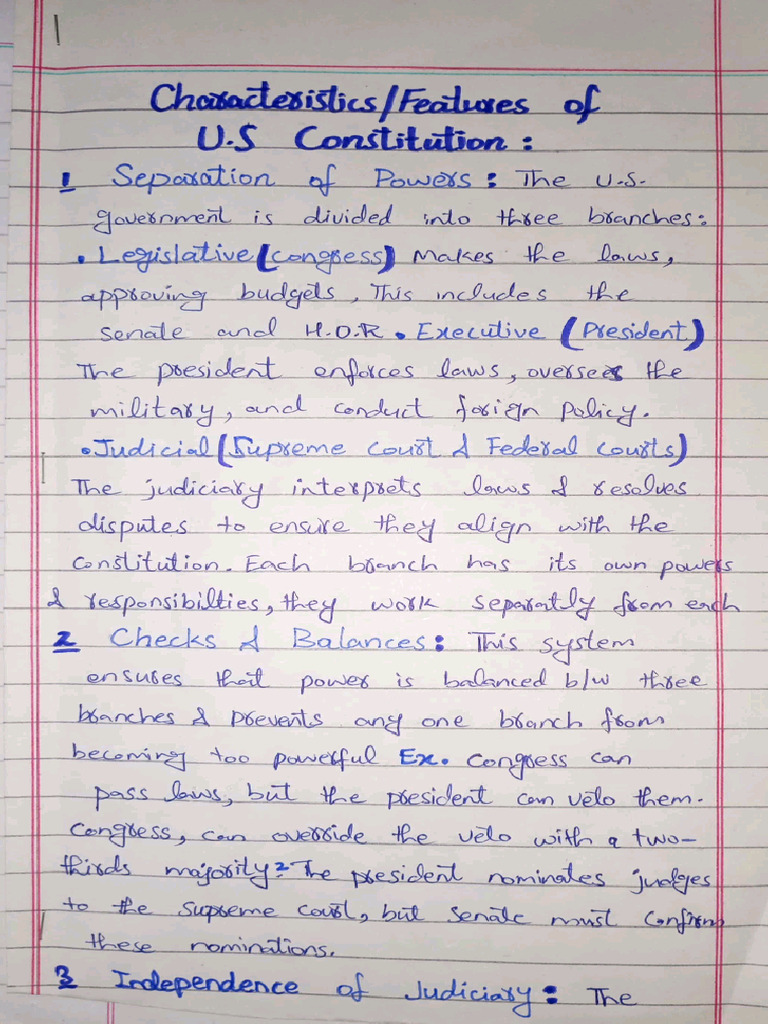 Characteristics/Features of
U.S Constitution:
1 Separation of Powers: The U.S.
government is divided into three branches:
• Legislative (congress) Makes the laws,
approving budgets, This includes the
Senate and H.O.R • Executive (President)
The president enforces laws, oversees the
military, and conduct forign policy.
• Judicial (Supreme Court & Federal courts)
The judiciary interprets laws & resolves
disputes to ensure they align with the
Constitution. Each branch has its own powers
& responsibilties, they work separatly from each
2 Checks & Balances: This system
ensures that power is balanced b/w three
branches & prevents any one branch from
becoming too powerful Ex. Congress can
pass laws, but the president can veto them.
Congress, can override the veto with a two-
thirds majority 2 The president nominates judges
to the Supreme court, but Senate must confirm
these nominations.
3 Independence of Judiciary: The